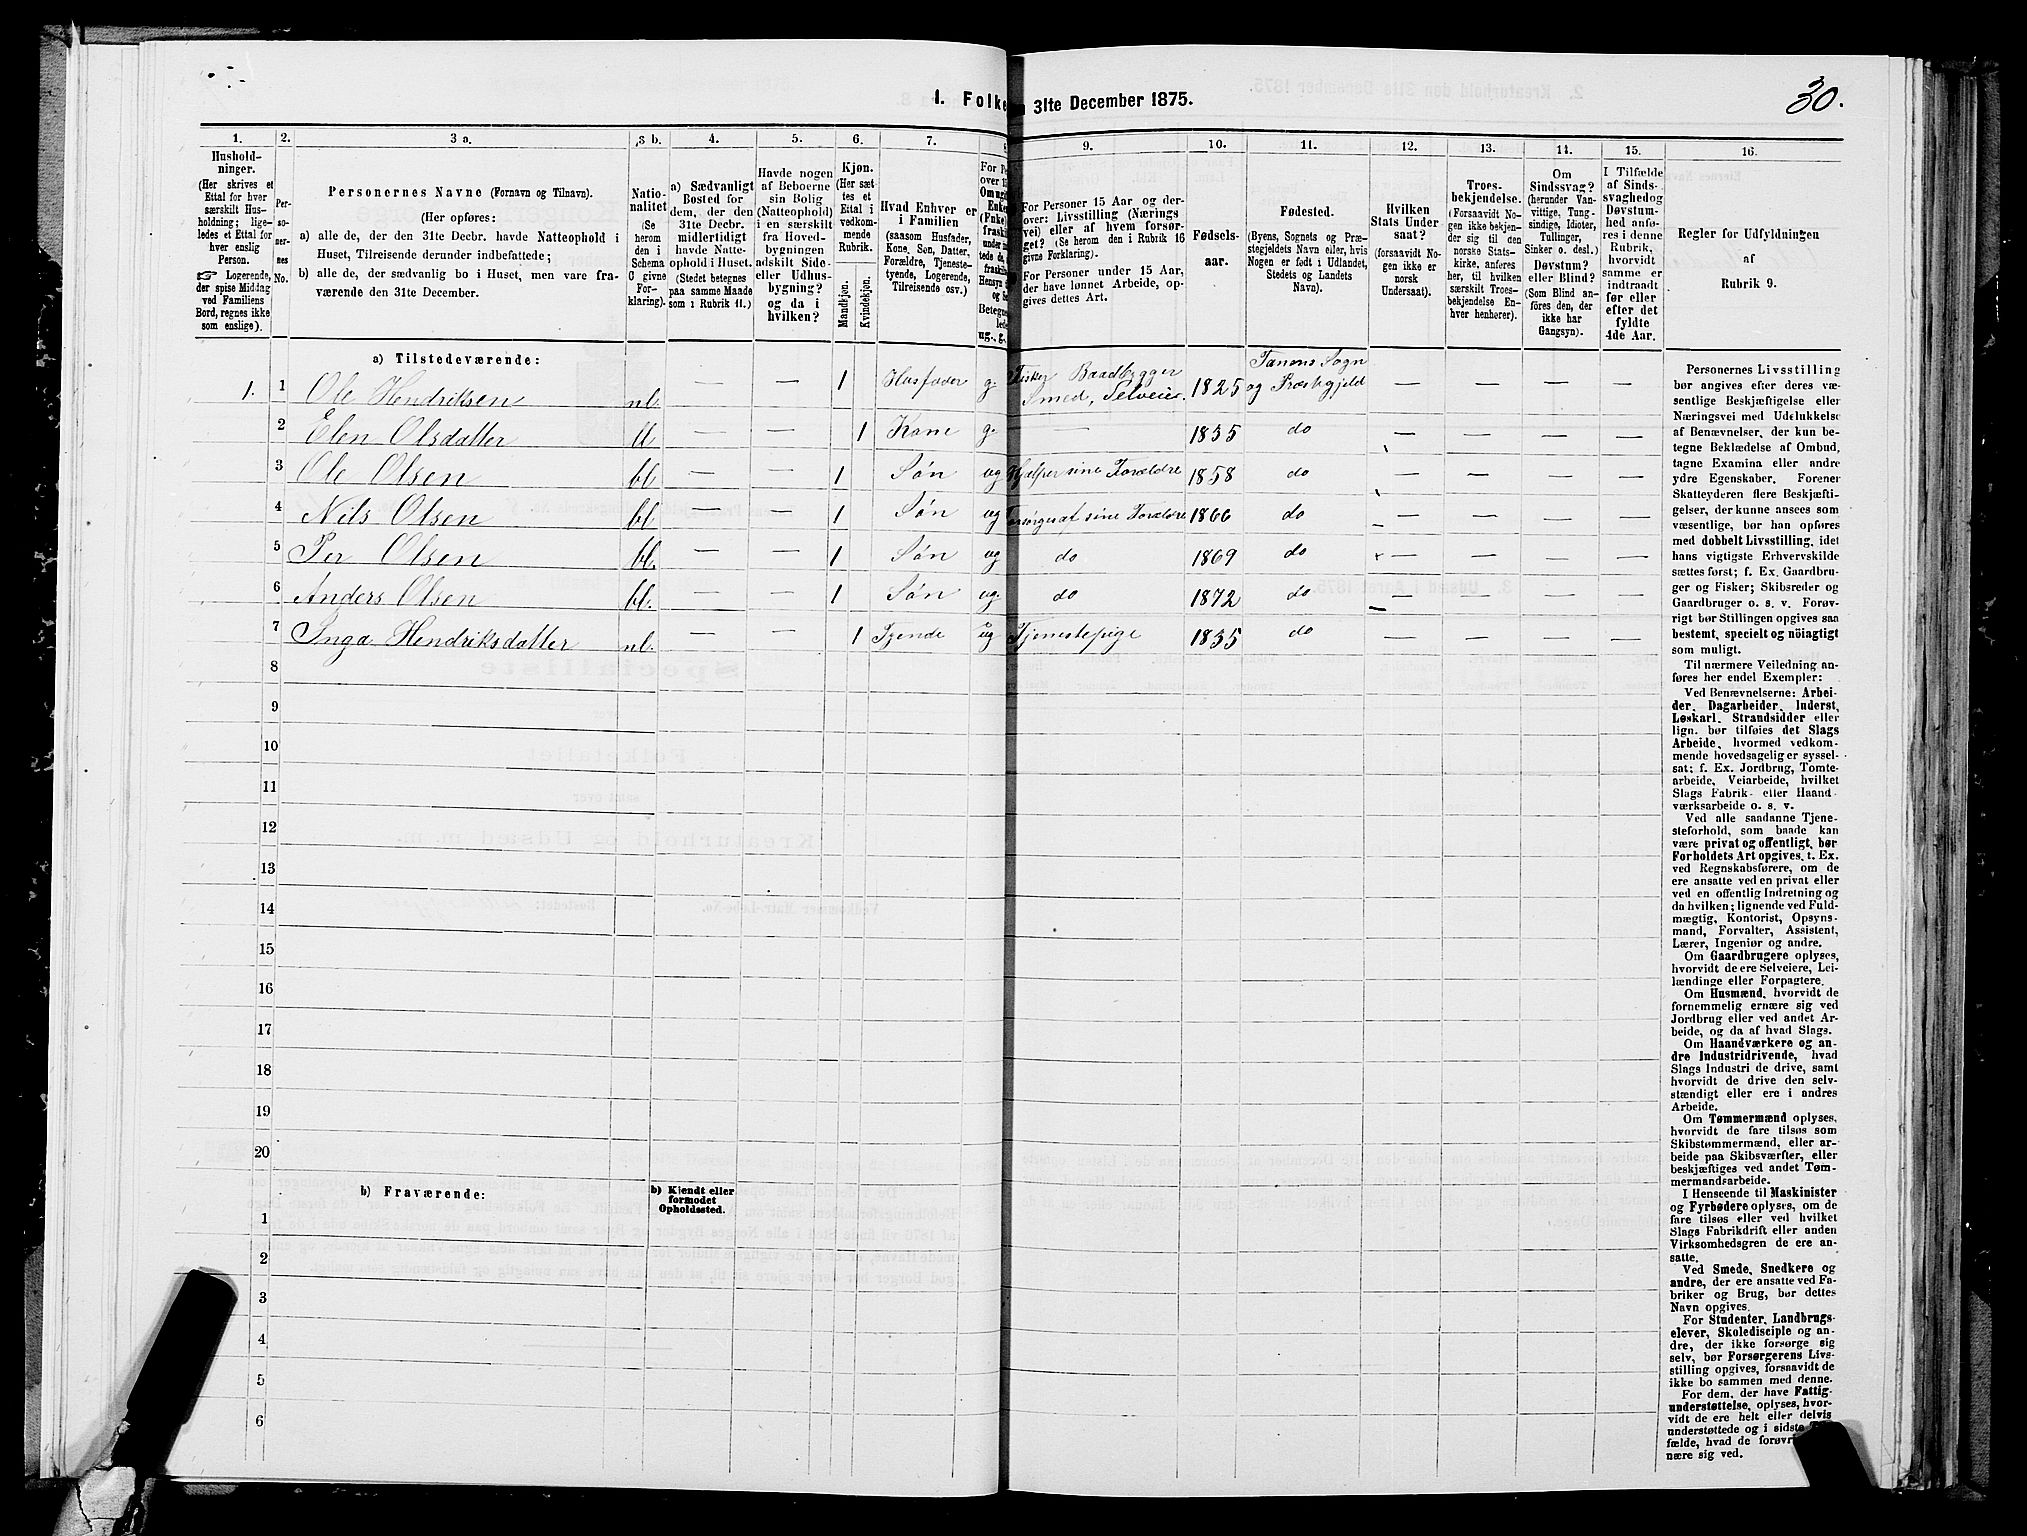 30.
1. Folke 31te December 1875.
1. 2. 3 a. 3 b. 4. 5. 6. 7. 8 9. 10. 11. 12. 13. 14. 15. 16.
Hushold-
ninger.
(Her skrives et
Ettal for hver
særskilt Hus-
holdning; lige-
ledes et Ettal for
hver enslig
Person.
☞ Logerende,
der spise Middag
ved Familiens
Bord, regnes ikke
som enslige).
Per-
so-
ner-
nes
No.
Personernes Navne (Fornavn og Tilnavn).
(Her opføres:
a) alle de, der den 31te Decbr. havde Natteophold i
Huset, Tilreisende derunder indbefattede;
b) alle de, der sædvanlig bo i Huset, men vare fra-
værende den 31te December.
Natio-
nalitet
(Se
herom
den i
Schema
C givne
For-
klaring).
a) Sædvanligt
Bosted for
dem, der den
31te Decbr.
midlertidigt
havde Natte-
ophold i Huset.
(Stedet betegnes
paa samme Maade
som i Rubrik 11.)
Havde nogen
af Beboerne
sin Bolig
(Natteophold)
i en særskilt
fra Hoved-
bygningen
adskilt Side-
eller Udhus-
bygning?
og da i
hvilken?
Kjøn.
(Her sæt-
tes et
Ettal i
vedkom-
mende
Rubrik.
Mandkjøn.
Kvindekjøn.
Hvad Enhver er
i Familien
(saasom Husfader,
Kone, Søn, Datter,
Forældre, Tjeneste-
tyende, Logerende,
Tilreisende osv.)
For P
over 15
Om ugi
Enke
(Fnke)
fraskil
under in
tede de,
fraskil
Hensyn
og Se
Betegne
lede
ug., g.,
For Personer 15 Aar og der-
over: Livsstilling (Nærings
vei) eller af hvem forsør-
get? (Se herom den i Rubrik 16
givne Forklaring).
For Personer under 15 Aar,
der have lønnet Arbeide, op-
gives dettes Art.
Fødsels-
aar.
Fødested.
(Byens, Sognets og Præ-
stegjeldets Navn eller, hvis
Nogen er født i Udlandet,
Stedets og Landets
Navn).
Hvilken
Stats Under
saat?
(forsaavidt No-
gen ikke er
norsk
Undersaat).
Troes-
bekjendelse.
(Forsaavidt No-
gen ikke bekjen-
der sig til den
norske Stats-
kirke, anføres
her, til hvilken
særskilt Troes-
bekjendelse En-
hver henhører).
Om
Sindssvag?
(herunder Van-
vittige, Tung-
sindige, Idioter,
Tullinger,
Sinker o. desl.)
Døvstum?
eller Blind?
(Som Blind an-
føres den, der
ikke har
Gangsyn).
I Tilfælde
af Sinds-
svaghed og
Døvstum-
hed anfø-
res i denne
Rubrik,
hvorvidt
samme er
indtraadt
før eller
efter det
fyldte
4de Aar.
Regler for Udfyldningen
af
Rubrik 9.
a) Tilstedeværende:
1. 1 Ole Hendriksen nl. — — 1 Husfader g. Fisker Baadbygger Smed, Selveier. 1825 Tanens Sogn og Præstegjeld — — — —
2 Elen Olsdatter ll — — 1 Kone g. — 1835 do — — — —
3 Ole Olsen bl — — 1 Søn ug Hjælper sine Forældre 1858 do — — — —
4 Nils Olsen bl — — 1 Søn ug Forsørges af sine Forældre 1866 do — — — —
5 Per Olsen bl. — — 1 Søn ug do 1869 do — — — —
6 Anders Olsen bl. — — 1 Søn ug. do 1872 do — — — —
7 Inga Hendriksdatter nl. — — 1 Tyende ug Tjenestepige 1835 do — — — —
8
9
10
11
12
13
14
15
16
17
18
19
20
b) Fraværende:
b) Kjendt eller
formodet
Opholdssted.
1
2
3
4
5
6
Personernes Livsstilling
bør angives efter deres væ-
sentlige Beskjæftigelse eller
Næringsvei med Udelukkelse
af Benævnelser, der kun be-
tegne Beklædelse af Ombud,
tagne Examina eller andre
ydre Egenskaber. Forener
Skatteyderen flere Beskjæfti-
gelser, der kunne ansees som
væsentlige, bør han opføres
med dobbelt Livsstilling, idet
hans vigtigste Erhvervskilde
sættes først; f. Ex. Gaardbru-
ger og Fisker; Skibsreder og
Gaardbruger o. s. v. Forøv-
rigt bør Stillingen opgives saa
bestemt, specielt og nöiagtigt
som muligt.
Til nærmere Veiledning an-
føres her endel Exempler:
Ved Benævnelserne: Arbei-
der, Dagarbeider, Inderst,
Løskarl, Strandsidder eller
lign. bør tilføies det Slags
Arbeide, hvormed vedkom-
mende hovedsagelig er syssel-
sat; f. Ex. Jordbrug, Tomte-
arbeide, Veiarbeide, hvilket
Slags Fabrik- eller Haand
værksarbeide o. s. v.
Ved alle saadanne Tjene-
steforhold, som baade kan
være privat og offentligt, bør
Forholdets Art opgives, t. Ex.
ved Regnskabsførere, om de
ere ansatte ved en privat eller
ved en offentlig Indretning og
da hvilken; lignende ved Fuld-
mægtig, Kontorist, Opsyns-
mand, Forvalter, Assistent,
Lærer, Ingeniør og andre.
Om Gaardbrugere oplyses,
hvorvidt de ere Selveiere, Lei-
lændinge eller Forpagtere.
Om Husmænd, hvorvidt de
fornemmelig ernære sig ved
Jordbrug eller ved andet Ar-
beide, og da af hvad Slags.
Om Haandværkere og an-
dre Industridrivende, hvad
Slags Industri de drive, samt
hvorvidt de drive den selv-
stændigt eller ere i andres
Arbeide.
Om Tømmermænd oplyses,
hvorvidt de fare tilsøs som
Skibstømmermænd, eller ar-
beide paa Skibsværfter, eller
beskjæftiges ved andet Tøm-
mermandsarbeide.
I Henseende til Maskinister
og Fyrbødere oplyses, om de
fare tilsøs eller ved hvilket
Slags Fabrikdrift eller anden
Virksomhedsgren de ere an-
satte.
Ved Smede, Snedkere og
andre, der ere ansatte ved Fa-
briker og Brug, bør dettes
Navn opgives.
For Studenter, Landbrugs-
elever, Skoledisciple og an-
dre, der ikke forsørge sig
selv, bør Forsørgerens Livs-
stilling opgives, forsaavidt de
ikke bo sammen med denne.
For dem, der have Fattig-
understøttelse, oplyses, hvor-
vidt de ere helt eller delvis
understøttede og i sidste
fælde, hvad de forøvri
nære sig ved.